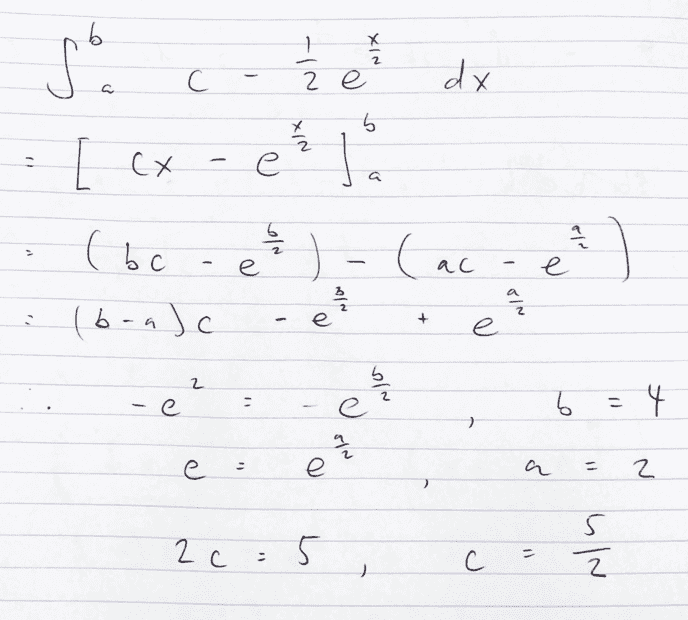 ∫_a^b c - 1/2 e^(x/2) dx
= [ cx - e^(x/2) ]_a^b
= (bc - e^(b/2)) - (ac - e^(a/2))
= (b-a)c - e^(b/2) + e^(a/2)
∴ -e^2 = -e^(b/2) , b = 4
e = e^(a/2) , a = 2
2c = 5 , c = 5/2